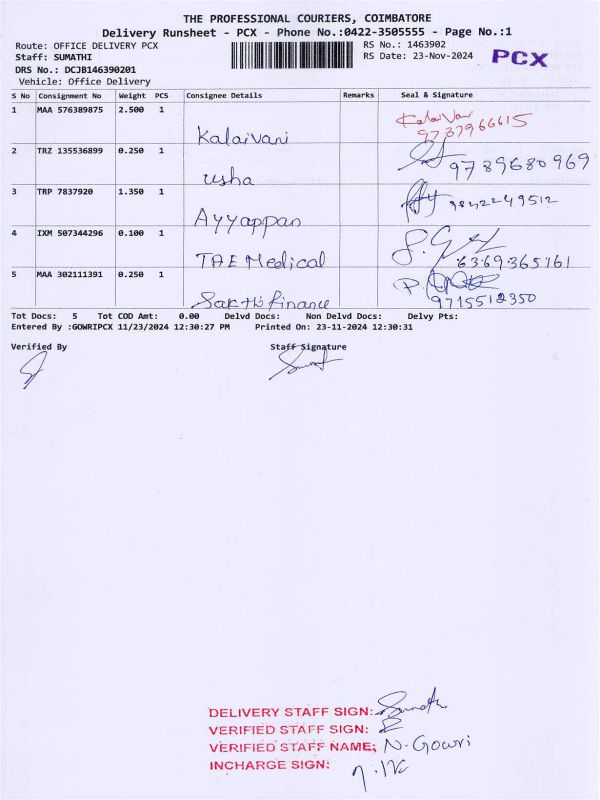 THE PROFESSIONAL COURIERS, COIMBATORE
Delivery Runsheet - PCX - Phone No.:0422-3505555 - Page No.:1
Route: OFFICE DELIVERY PCX RS No.: 1463902
Staff: SUMATHI RS Date: 23-Nov-2024 PCX
DRS No.: DCJB146390201
Vehicle: Office Delivery
S No Consignment No Weight PCS Consignee Details Remarks Seal & Signature
1 MAA 576389875 2.500 1 Kalaivani KalaiVani
9787966615
2 TRZ 135536899 0.250 1 usha 9789680969
3 TRP 7837920 1.350 1 Ayyappan 9842249512
4 IXM 507344296 0.100 1 TAE Medical 6369365161
5 MAA 302111391 0.250 1 Sakthi finance 9715512350
Tot Docs: 5 Tot COD Amt: 0.00 Delvd Docs: Non Delvd Docs: Delvy Pts:
Entered By :GOWRIPCX 11/23/2024 12:30:27 PM Printed On: 23-11-2024 12:30:31
Verified By Staff Signature
DELIVERY STAFF SIGN:
VERIFIED STAFF SIGN:
VERIFIED STAFF NAME: N. Gowri
INCHARGE SIGN: